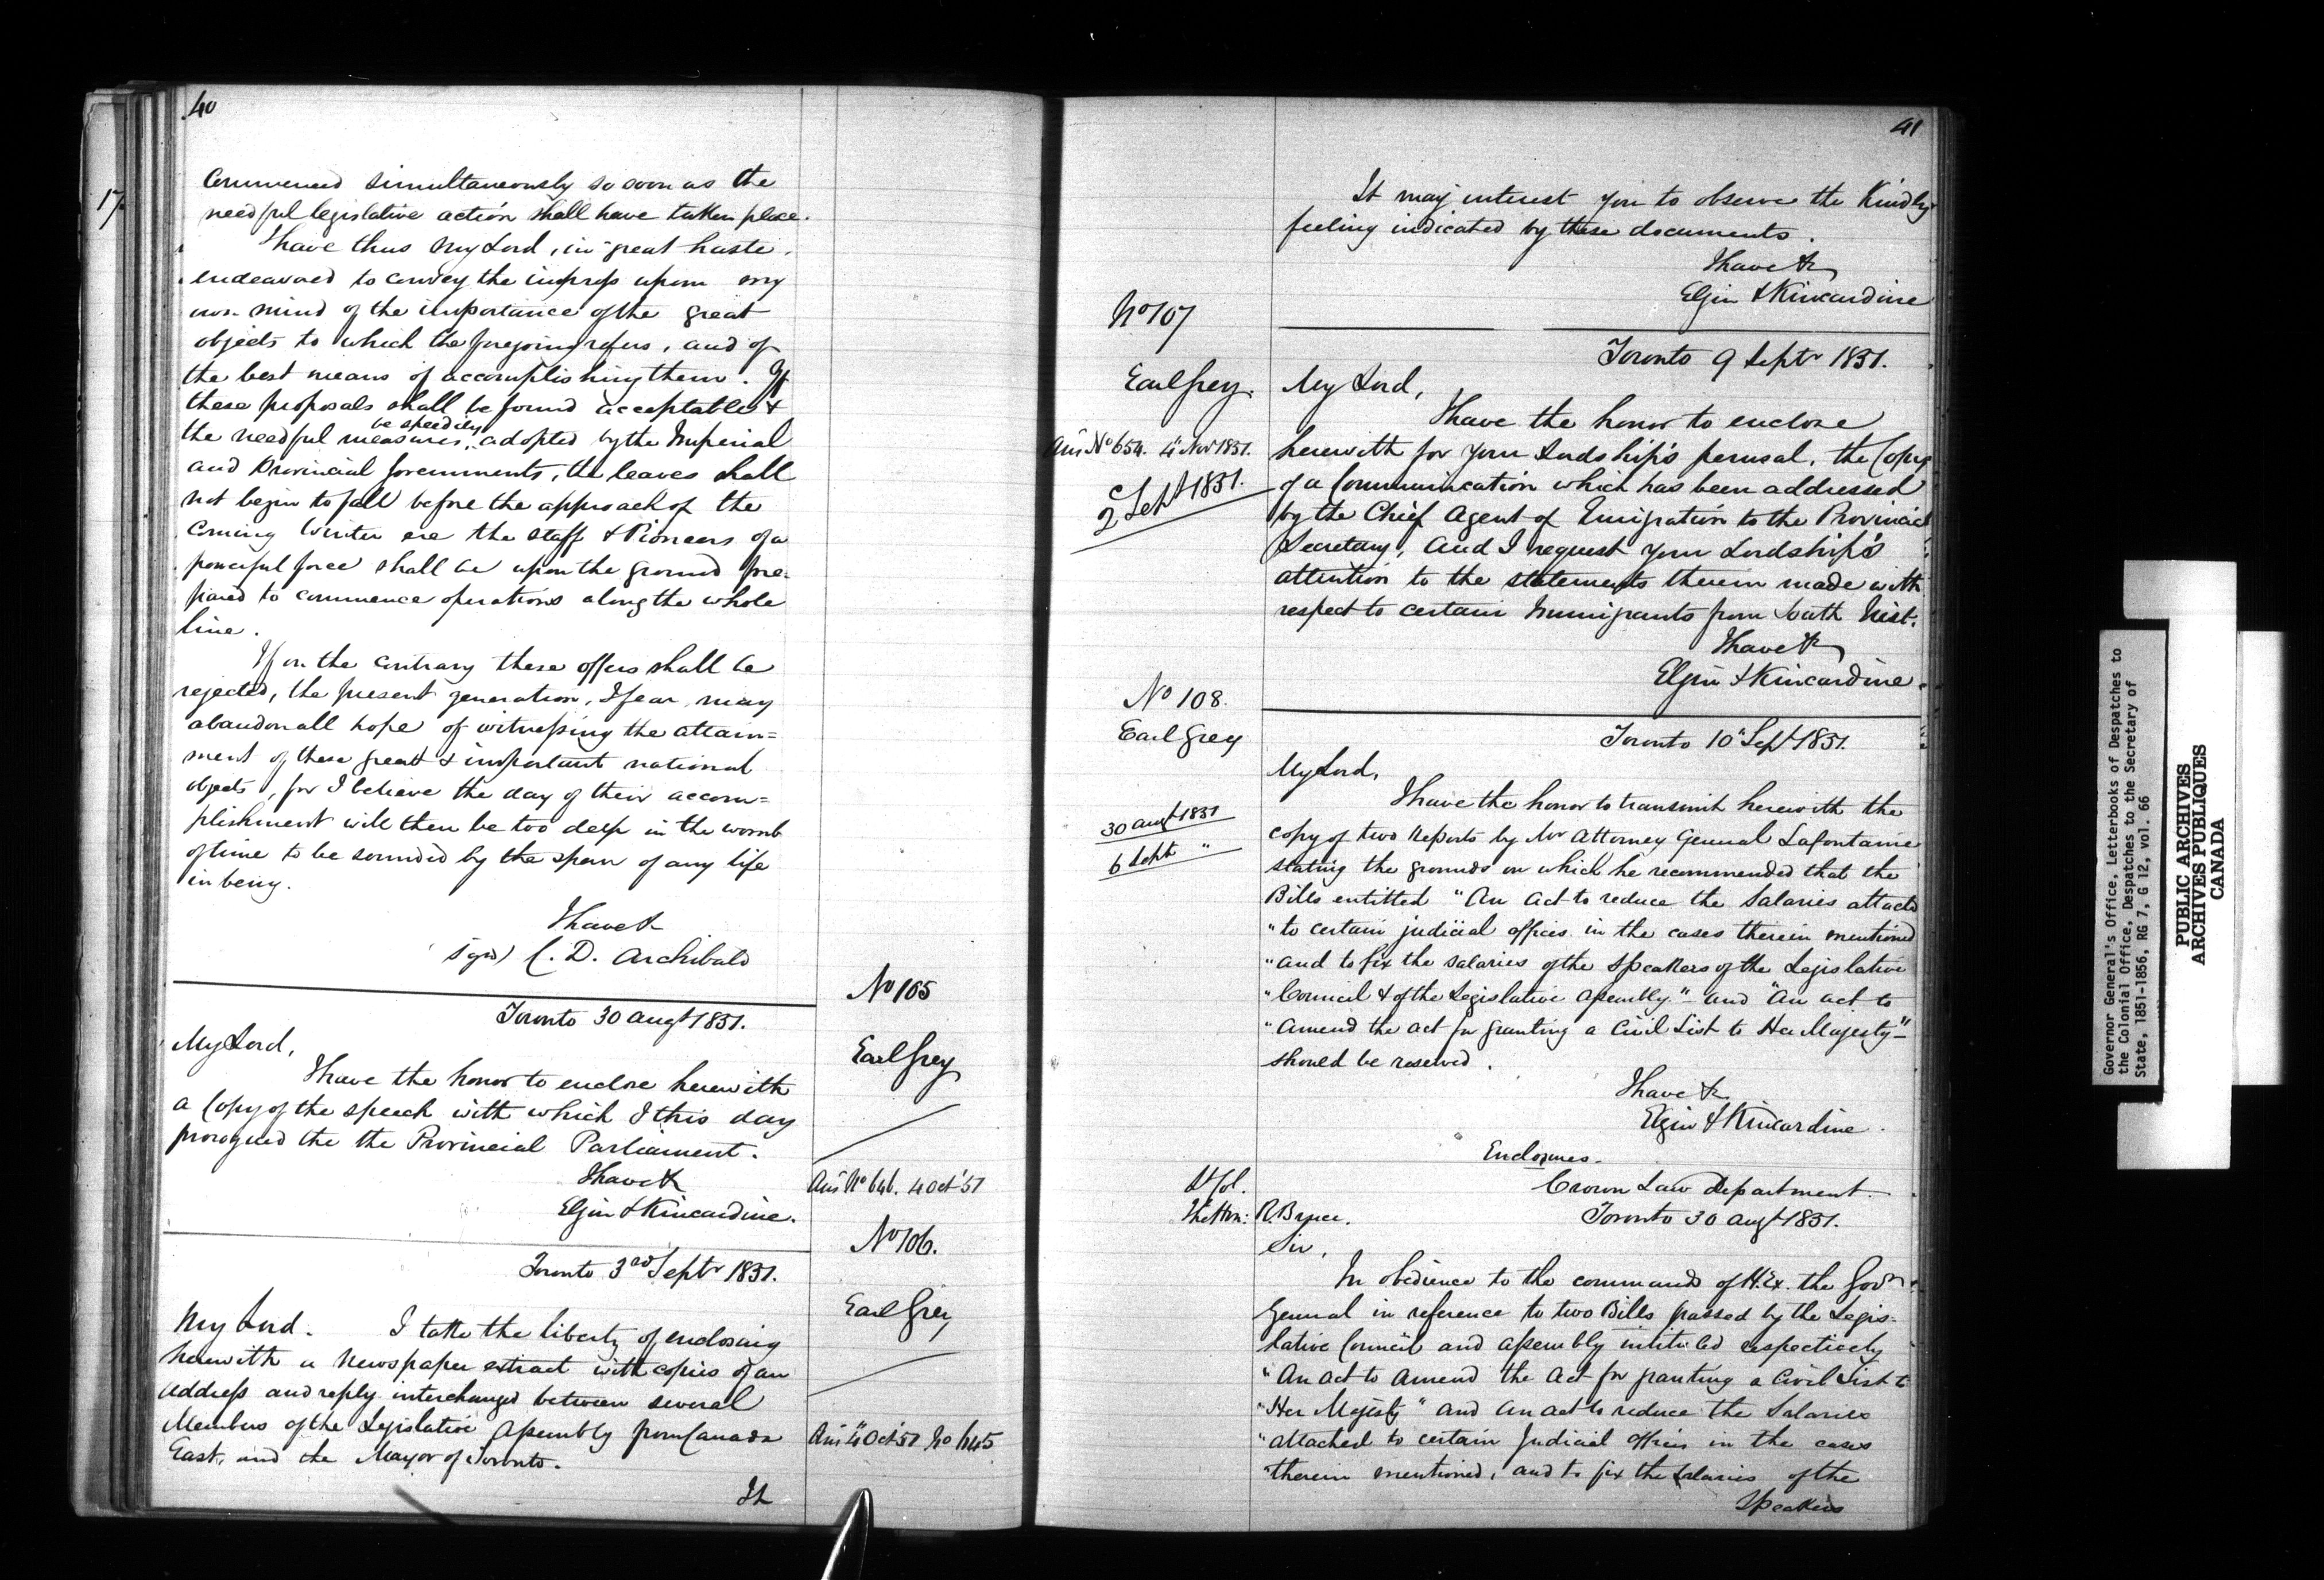 40
17
Commenced simultaneously so soon as the
needful legislative action shall have taken place.
I have thus My Lord, in great haste,
endeavored to convey the impress upon my
own mind of the importance of the great
objects to which the foregoing refers, and of
the best means of accomplishing them. If
these proposals shall be found acceptable &
be speedily
the needful measures adopted by the Imperial
and Provincial Governments, the leaves shall
not begin to fall before the approach of the
coming Winter ere the Staff & Pioneers of a
powerful force shall be upon the ground pre-
pared to commence operations along the whole
line.
If on the contrary these offers shall be
rejected, the present generation, I fear, may
abandon all hope of witnessing the attain=
ment of these great & important national
objects, for I believe the day of their accom=
plishment will then be too deep in the womb
of time to be sounded by the span of any life
in being.
I have &
Signd) C. D. Archibald
No 105
Toronto 30 Augt 1851.
Earl Grey
My Lord,
I have the honor to enclose herewith
a Copy of the speech with which I this day
prorogued the the Provincial Parliament.
I have &
Elgin & Kincardine.
Ans No 646. 4 Oct '51
No 106.
Toronto 3rd Septr 1851.
Earl Grey
My Lord. I take the liberty of enclosing
herewith a Newspaper extract with copies of an
Address and reply interchanged between several
Members of the Legislative Assembly from Canada
East, and the Mayor of Toronto.
Ans 4 Oct 51 No 645
It
41
It may interest you to observe the Kindly
feeling indicated by these documents.
I have &
Elgin & Kincardine
No 107
Toronto 9 Septr 1851.
Earl Grey.
My Lord,
I have the honor to enclose
Ans No 654. 4 Novr 1851.
herewith for your Lordship's perusal, the Copy
2 Sept 1851.
of a Communication which has been addressed
by the Chief Agent of Emigration to the Provincial
Secretary, and I request your Lordship's
attention to the statements therein made with
respect to certain Immigrants from South Uist.
I have &
Elgin & Kincardine.
No 108.
Earl Grey
Toronto 10 Sept 1851.
My Lord,
I have the honor to transmit herewith the
30 Augt 1851
copy of two Reports by Mr Attorney General Lafontaine
6 Sept "
stating the grounds on which he recommended that the
Bills entitled "An Act to reduce the Salaries attachd
"to certain judicial offices in the cases therein mentioned
"and to fix the salaries of the Speakers of the Legislative
"Council & of the Legislative Assembly" and "An act to
"Amend the Act for granting a Civil List to Her Majesty"
should be reserved.
I have &
Elgin & Kincardine.
Enclosures.
Crown Law Department.
Lt Col.
The Hon: R. Bruce.
Toronto 30 Augt 1851.
Sir,
In obedience to the commands of H. Ex. the Govr
General in reference to two Bills passed by the Legis-
lative Council and Assembly intituled respectively
"An Act to Amend the Act for granting a Civil List to
"Her Majesty" and An act to reduce the Salaries
"attached to certain Judicial offices in the cases
"therein mentioned, and to fix the salaries of the
Speakers
Governor General's Office, Letterbooks of Despatches to
the Colonial Office, Despatches to the Secretary of
State, 1851-1856, RG 7, G 12, vol. 66
PUBLIC ARCHIVES
ARCHIVES PUBLIQUES
CANADA